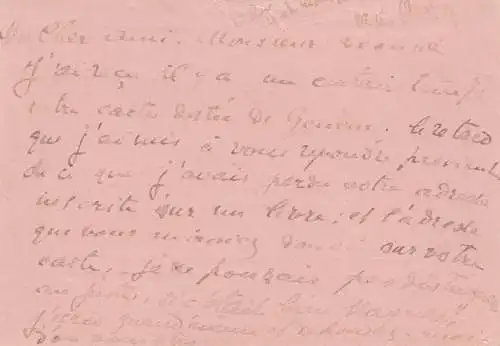 cher ami. Monsieur
j'ai reçu il y a un certain temps
votre carte datée de Genève. le retard
que j'ai mis à vous répondre provient
de ce que j'avais perdu votre adresse
inscrite sur un livre; et l'adresse
que vous m'aviez donné sur votre
carte, je ne pouvais pas distinguer
au juste, si c'était bien
quand même et